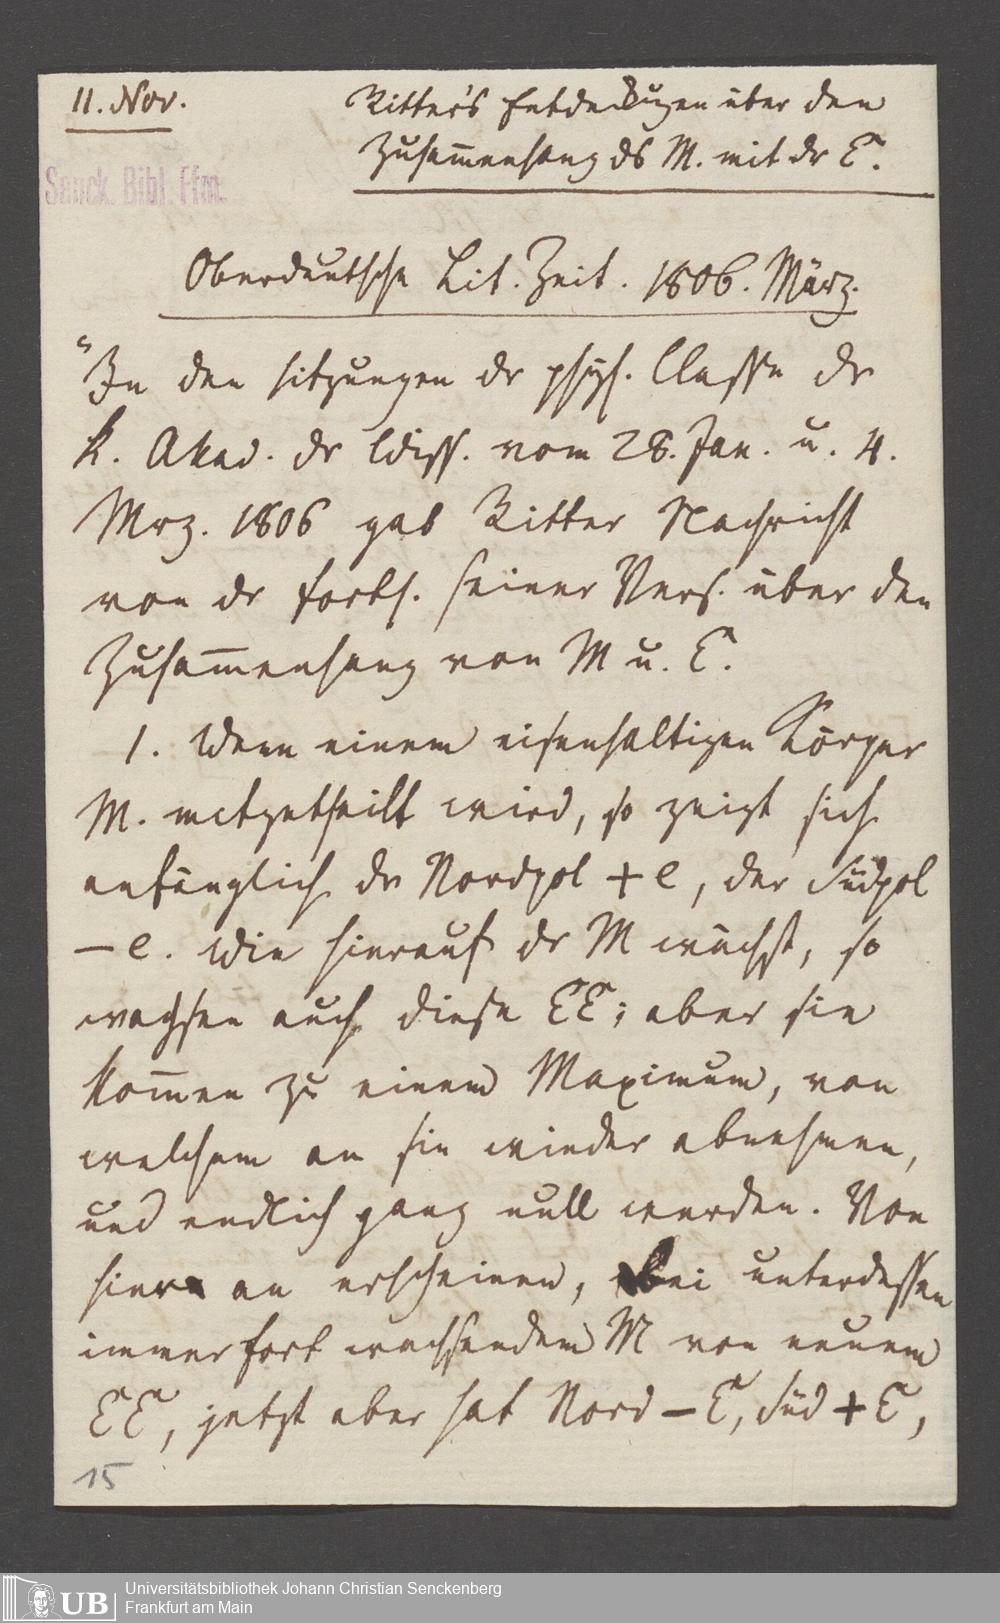 11. Nov.
Ritter's Entdeckugen über den
Zusam̅enhang ds M. mit dr E.
Senck. Bibl. Ffm.
Oberdeutsche Lit. Zeit. 1806. März.
"In den Sitzungen dr phys. Classe dr
k. Akad. dr Wiss. vom 28. Jan. u. 4.
Mrz. 1806 gab Ritter Nachricht
von dr Forts. seiner Vers. über den
Zusam̅enhang von M u. E.
1. Wenn einem eisenhaltigen Körper
M. mitgetheilt wird, so zeigt sich
anfänglich dr Nordpol + e, der Südpol
– e. Wie hierauf dr M wächst, so
wachsen auch diese EE; aber sie
kom̅en zu einem Maximum, von
welchem an sie wieder abnehmen,
und endlich ganz null werden. Von
hier an erscheinen, bei unterdessen
immer fort wachsendem M von neuem
EE, jetzt aber hat Nord – E, Süd + E,
15
UB
Universitätsbibliothek Johann Christian Senckenberg
Frankfurt am Main